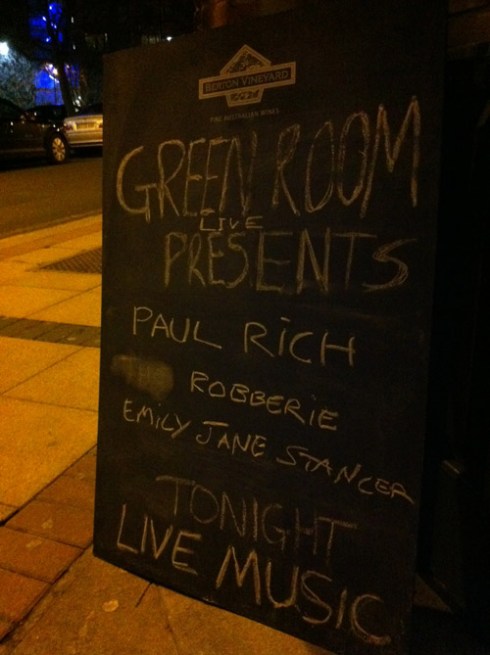 BERTON VINEYARD
FINE AUSTRALIAN WINES
GREEN ROOM
LIVE
PRESENTS
PAUL RICH
ROBBERIE
EMILY JANE STANCER
TONIGHT
LIVE MUSIC